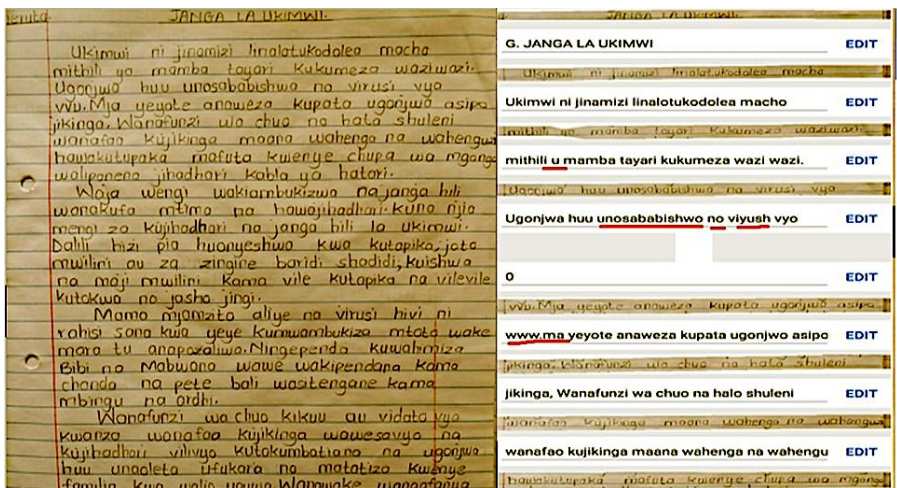 JANGA LA UKIMWI.
Ukimwi ni jinamizi linalotukodolea macho
mithili ya mamba tayari kukumeza waziwazi.
Ugonjwa huu unosababishwa na virusi vya
vvu. Mja yeyote anaweza kupata ugonjwa asipo
jikinga, Wanafunzi wa chuo na hata shuleni
wanafaa kujikinga maana wahenga na wahengua
hawakutupaka mafuta kwenye chupa wa mgongo
waliponena jihadhari kabla ya hatari.
Waja wengi wakiambukizwa na janga hili
wanakufa mtima na hawajihadhari. Kuna njia
mengi za kujihadhari na janga hili la ukimwi.
Dalili hizi pia huonyeshwa kwa kutapika, jota
mwilini au za zingine baridi shadidi, kuishwa
na maji mwilini kama vile kutapika na vilevile
kutokwa na jasho jingi.
Mama mjamzito aliye na virusi hivi ni
rahisi sana kwa yeye kumwambukiza mtoto wake
mara tu anapozaliwa. Ningependa kuwahimiza
Bibi na Mabwana wawe wakipendana kama
chanda na pete bali wasitengane kama
mbingu na ardhi.
Wanafunzi wa chuo kikuu au vidato vya
kwanza wanafaa kujikinga wawesavyo na
kujihadhari vilivyo kutokumbatiana na ugonjwa
huu unaoleta ufukara na matatizo kwenye
familia
G. JANGA LA UKIMWI EDIT
Ukimwi ni jinamizi linalotukodolea macho
Ukimwi ni jinamizi linalotukodolea macho EDIT
mithili ya mamba tayari kukumeza waziwazi.
mithili u mamba tayari kukumeza wazi wazi. EDIT
Ugonjwa huu unosababishwa na virusi vya
Ugonjwa huu unosababishwo no viyush vyo EDIT
0 EDIT
vvu. Mja yeyote anaweza kupata ugonjwa asipo
www.ma yeyote anaweza kupata ugonjwo asipo EDIT
jikinga, Wanafunzi wa chuo na hata shuleni
jikinga, Wanafunzi wa chuo na halo shuleni EDIT
wanafaa kujikinga maana wahenga na wahengua
wanafao kujikinga maana wahenga na wahengu EDIT
hawakutupaka mafuta kwenye chupa wa mgongo